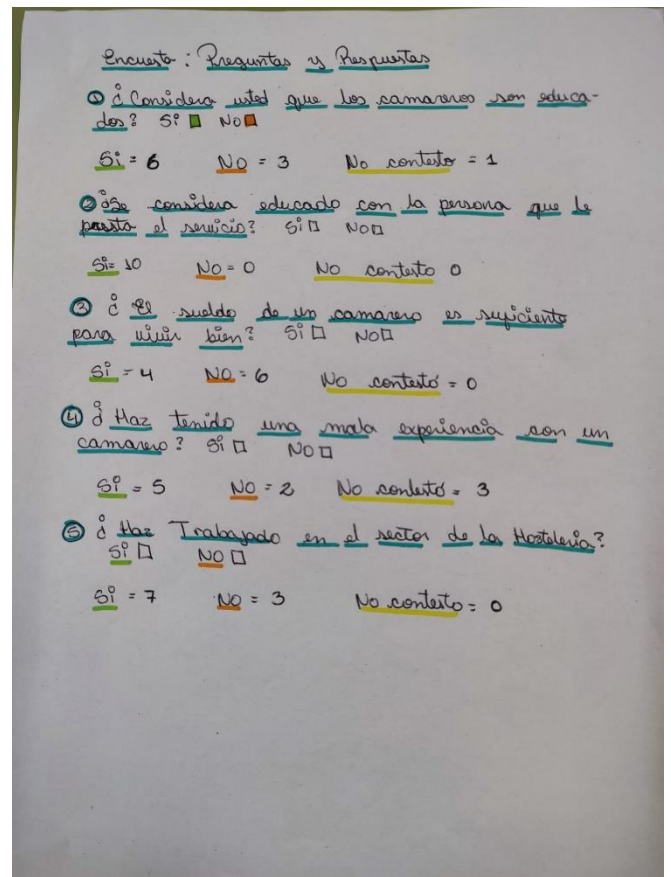 Encuesta : Preguntas y Respuestas
① ¿Considera usted que los camareros son educa-
dos? Si No
Si = 6 No = 3 No contesto = 1
② ¿Se considera educado con la persona que le
presta el servicio? Si No
Si = 10 No = 0 No contesto 0
③ ¿El sueldo de un camarero es suficiente
para vivir bien? Si No
Si = 4 No = 6 No contestó = 0
④ ¿Haz tenido una mala experiencia con un
camarero? Si No
Si = 5 No = 2 No contestó = 3
⑤ ¿Haz Trabajado en el sector de la Hostelería?
Si No
Si = 7 No = 3 No contesto = 0